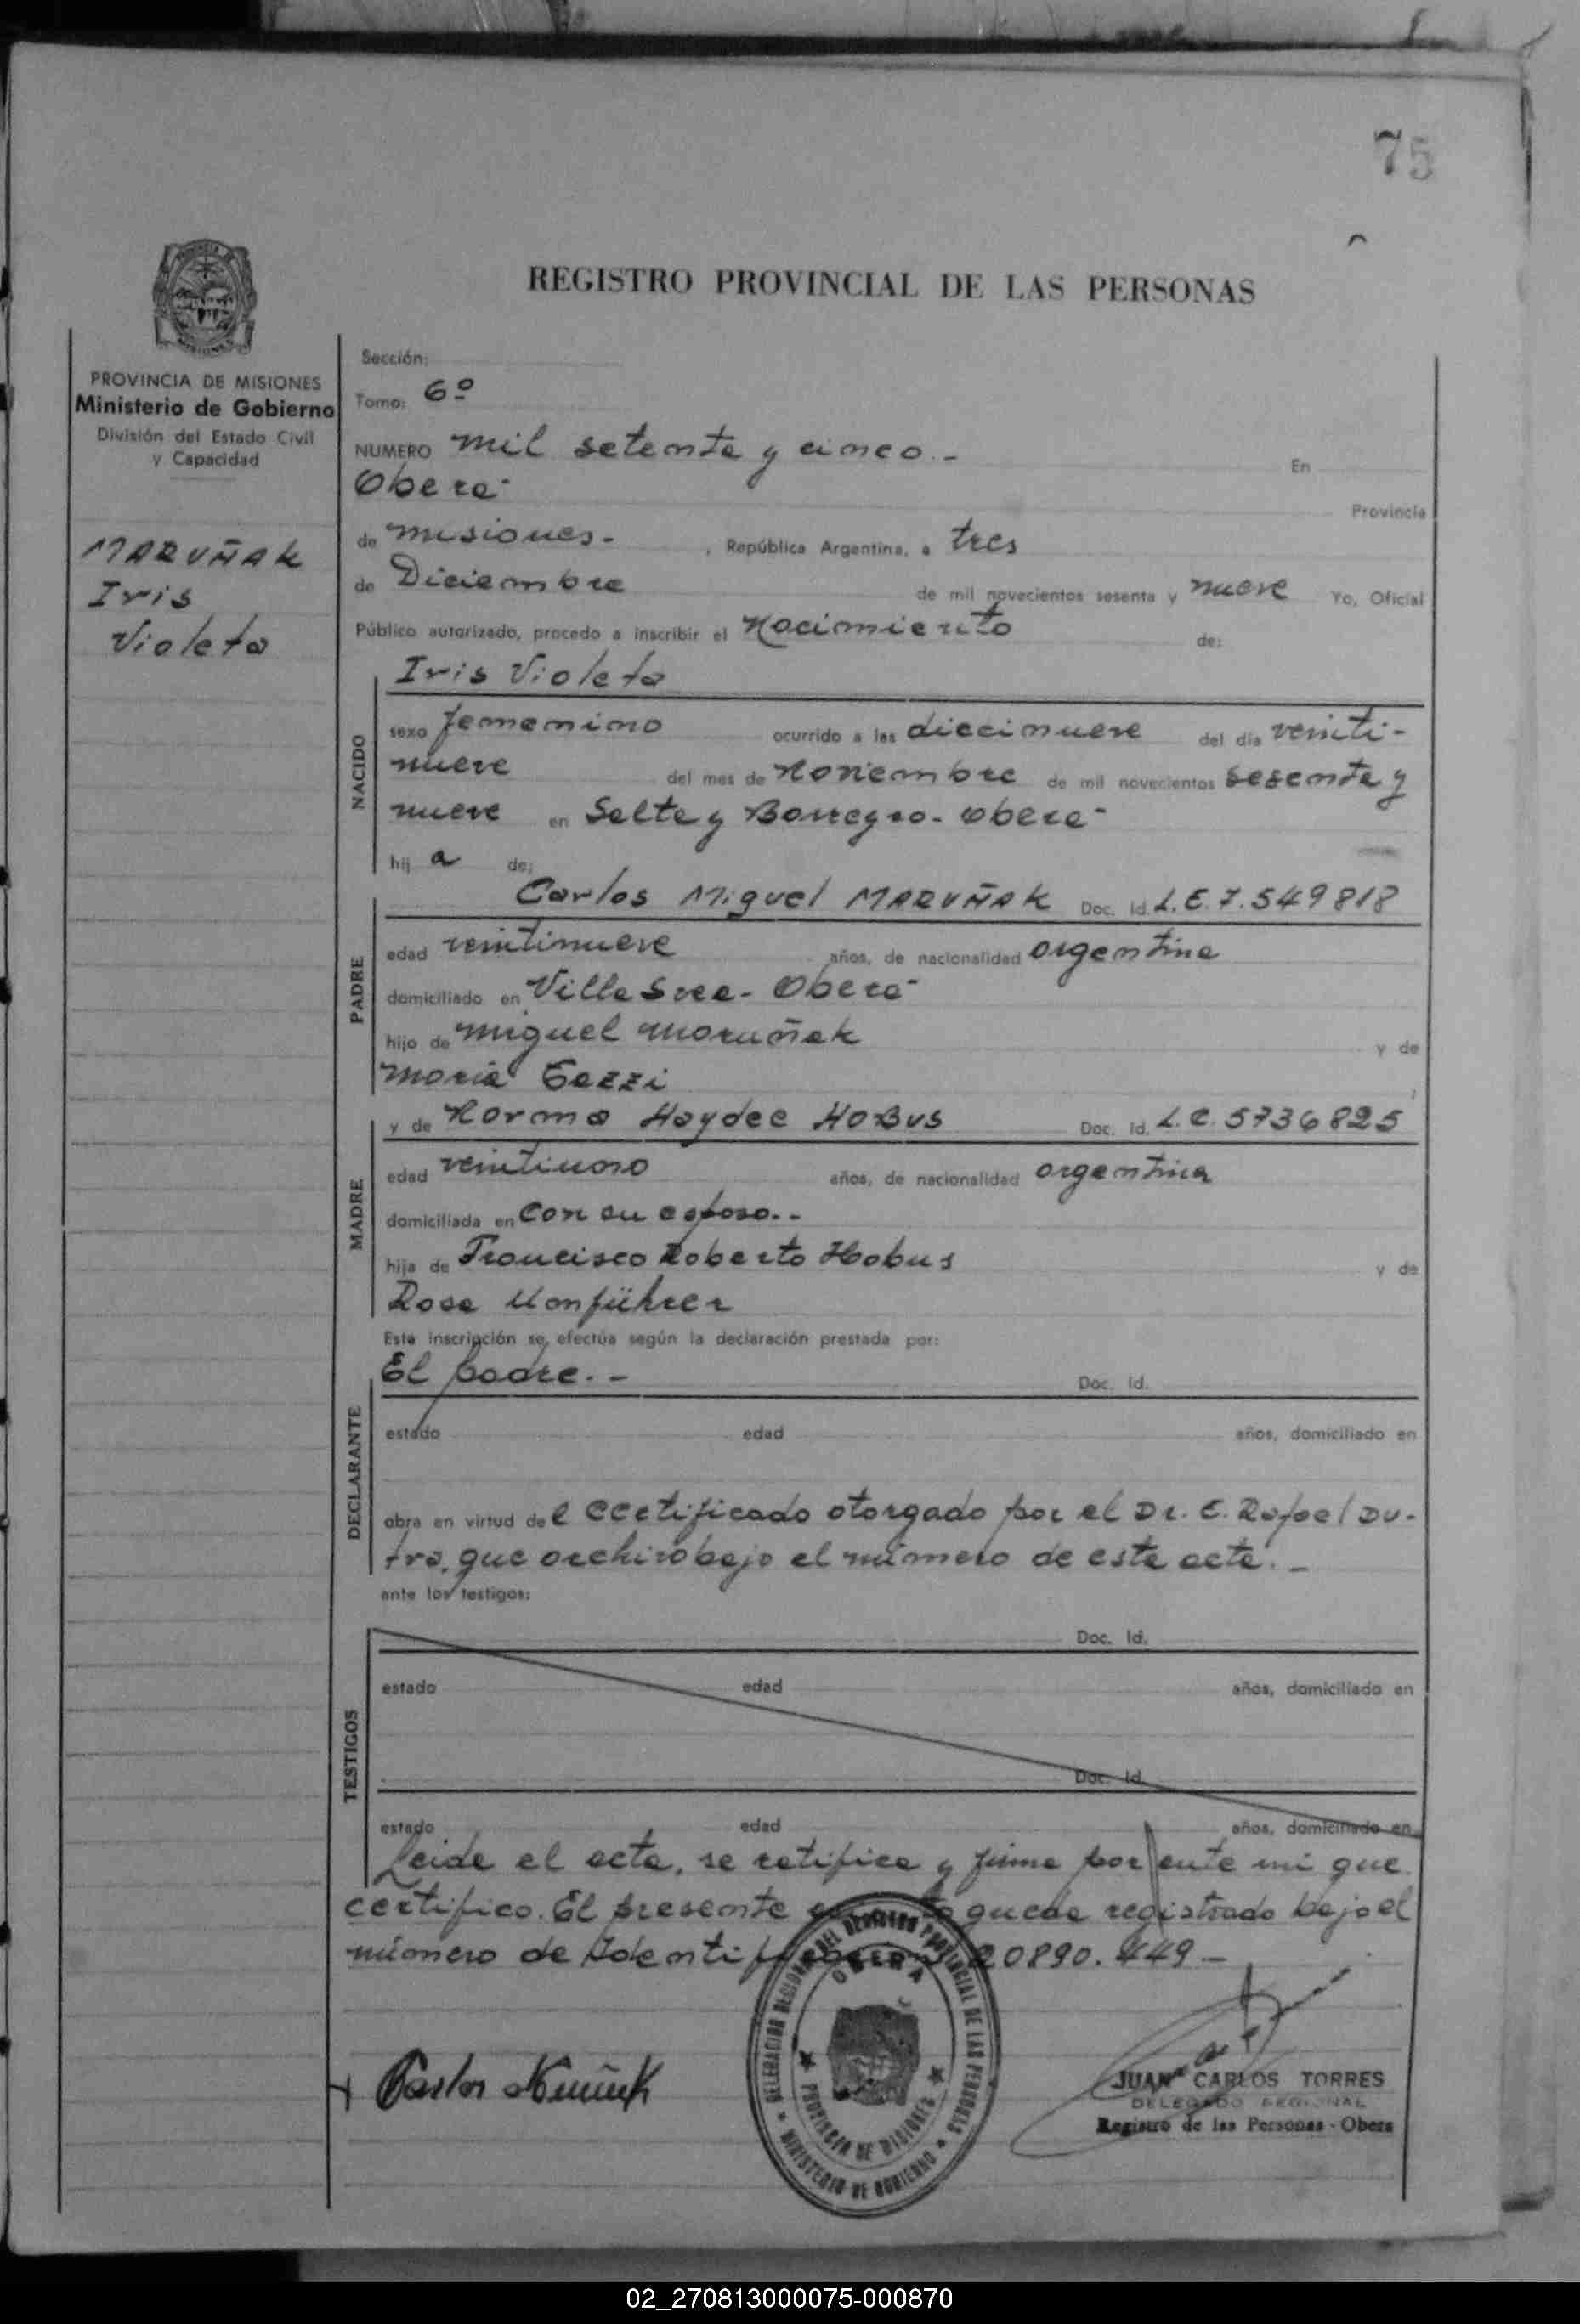 75
REGISTRO PROVINCIAL DE LAS PERSONAS
PROVINCIA DE MISIONES
Ministerio de Gobierno
División del Estado Civil
y Capacidad
MARUÑAK
Iris
Violeta
Sección:
Tomo: 6º
NUMERO mil setenta y cinco.- En
Oberá
Provincia
de Misiones.- , República Argentina, a tres
de Diciembre de mil novecientos sesenta y nueve Yo, Oficial
Público autorizado, procedo a inscribir el Nacimiento de:
Iris Violeta
NACIDO
sexo femenino ocurrido a las diecinueve del día veinti-
nueve del mes de Noviembre de mil novecientos sesenta y
nueve en Salta y Borregro- Oberá
hij a de:
PADRE
Carlos Miguel MARUÑAK Doc. Id. L.E. 7.549818
edad veintinueve años, de nacionalidad argentina
domiciliado en Villa Svea- Oberá
hijo de Miguel Maruñak y de
María
MADRE
y de Norma Haydee HOBUS Doc. Id. L.C. 5736825
edad veintiuno años, de nacionalidad argentina
domiciliada en con su esposo.-
hija de Francisco Roberto Hobus y de
Rosa
Esta inscripción se efectúa según la declaración prestada por:
DECLARANTE
El padre.- Doc. Id.
estado edad años, domiciliado en
obra en virtud del certificado otorgado por el Dr. E. Rafael Du-
tra, que archivo bajo el número de este acta.-
ante los testigos:
TESTIGOS
Doc. Id.
estado edad años, domiciliado en
Doc. Id.
estado edad años, domiciliado en
Leida el acta, se ratifica y firma por ante mi que
certifico. El presente queda registrado bajo el
número de 20890.449-
DELEGACION REGIONAL DEL REGISTRO PROVINCIAL DE LAS PERSONAS
OBERA
PROVINCIA DE MISIONES
MINISTERIO DE GOBIERNO
JUAN CARLOS TORRES
DELEGADO REGIONAL
Registro de las Personas - Obera
02_270813000075-000870